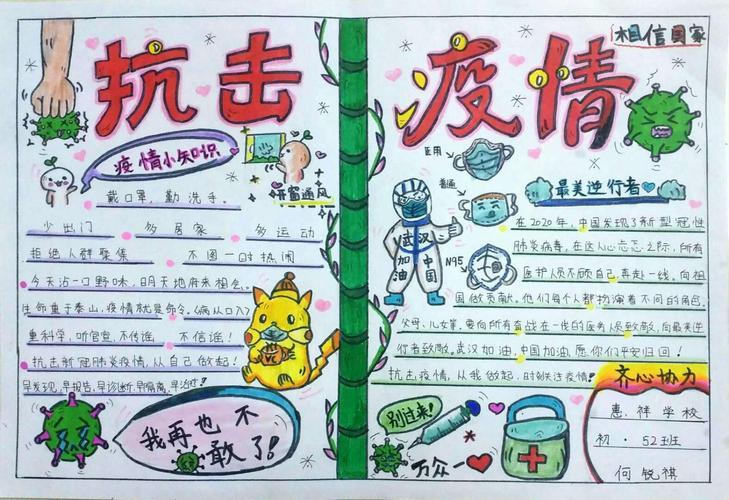 抗击
疫情
相信国家
疫情小知识
开窗通风
戴口罩,勤洗手。
少出门 多居家 多运动
拒绝人群聚集 不图一时热闹
今天沾一口野味,明天地府来相会。
生命重于泰山,疫情就是命令。《病从口入》
重科学,听官宣,不传谣 不信谣!
抗击新冠肺炎疫情,从自己做起!
早发现,早报告,早诊断,早隔离,早治疗!
我再也不
敢了!
医用
普通
N95
武汉
加油
中国
最美逆行者
在2020年,中国发现了新型冠性
肺炎病毒,在这人心忘忘之际,所有
医护人员不顾自己,奔赴一线。向祖
国做贡献。他们每个人都扮演着不同的角色。
父母,儿女等。要向所有奋战在一线的医务人员致敬,向最美逆
行者致敬。武汉加油,中国加油,愿你们平安归回!
抗击疫情,从我做起,时刻关注疫情!
别过来!
万众一
齐心协力
惠祥学校
初·52班
何锐祺